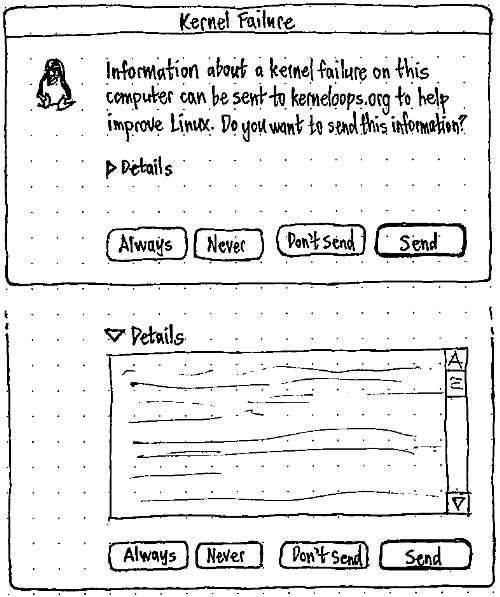 Kernel Failure
Information about a kernel failure on this
computer can be sent to kerneloops.org to help
improve Linux. Do you want to send this information?
Details
Always Never Don't Send Send
Details
Always Never Don't Send Send